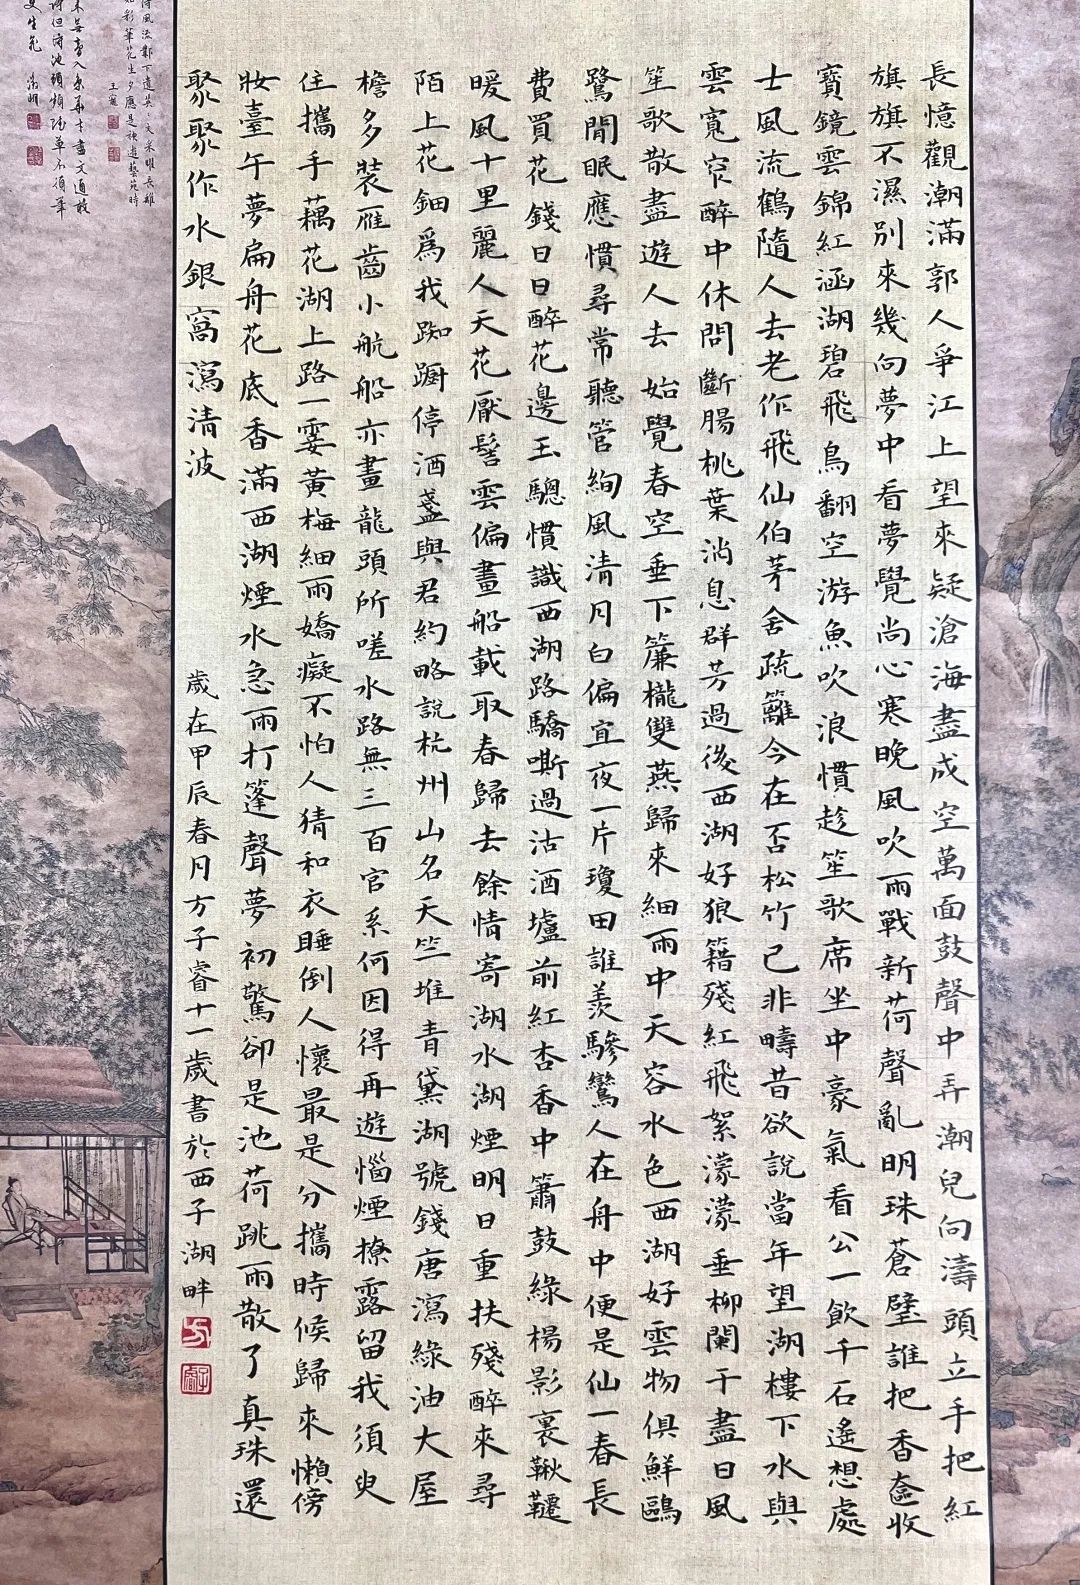 長憶觀潮滿郭人爭江上望來疑滄海盡成空萬面鼓聲中弄潮兒向濤頭立手把紅
旗旗不濕別來幾向夢中看夢覺尚心寒晚風吹雨戰新荷聲亂明珠蒼壁誰把香奩收
寶鏡雲錦紅涵湖碧飛鳥翻空游魚吹浪慣趁笙歌席坐中豪氣看公一飲千石遙想處
士風流鶴隨人去老作飛仙伯茅舍疏籬今在否松竹已非疇昔欲說當年望湖樓下水與
雲寬窄醉中休問斷腸桃葉消息群芳過後西湖好狼籍殘紅飛絮濛濛垂柳闌干盡日風
笙歌散盡遊人去始覺春空垂下簾櫳雙燕歸來細雨中天容水色西湖好雲物俱鮮鷗
鷺閒眠應慣尋常聽管絃風清月白偏宜夜一片瓊田誰羨驂鸞人在舟中便是仙一春長
費買花錢日日醉花邊玉驄慣識西湖路驕嘶過沽酒壚前紅杏香中簫鼓綠楊影裏鞦韆
暖風十里麗人天花厭髻雲偏畫船載取春歸去餘情寄湖水湖煙明日重扶殘醉來尋
陌上花鈿爲我踟躕停酒盞與君約略說杭州山名天竺堆青黛湖號錢唐瀉綠油大屋
檐多裝雁齒小航船亦畫龍頭所嗟水路無三百官系何因得再遊惱煙撩露留我須臾
住攜手藕花湖上路一霎黃梅細雨嬌癡不怕人猜和衣睡倒人懷最是分攜時候歸來懶傍
妝臺午夢扁舟花底香滿西湖煙水急雨打篷聲夢初驚卻是池荷跳雨散了真珠還
聚聚作水銀窩瀉清波
歲在甲辰春月方子睿十一歲書於西子湖畔